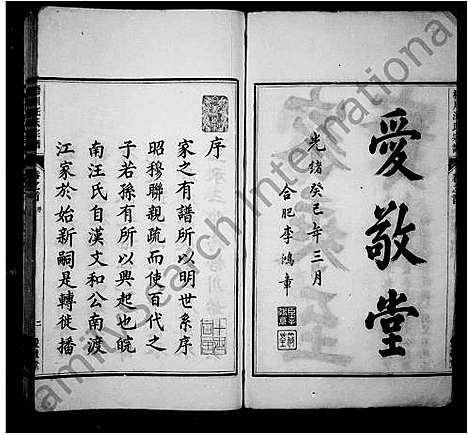 愛敬堂
光緒癸巳年三月
合肥李鴻章
序
家之有譜所以明世系序
昭穆聯親疏而使百代之
子若孫有所以興起也皖
南汪氏自漢文和公南渡
江家於始新嗣是轉徙播